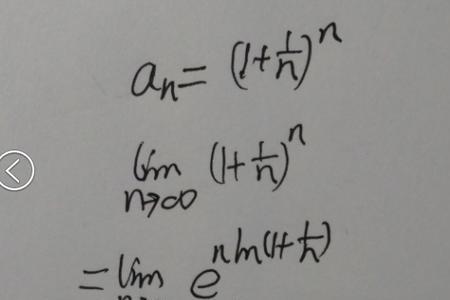 aₙ = (1+1/n)ⁿ
lim n→∞ (1+1/n)ⁿ
= lim e^(n ln(1+1/n))